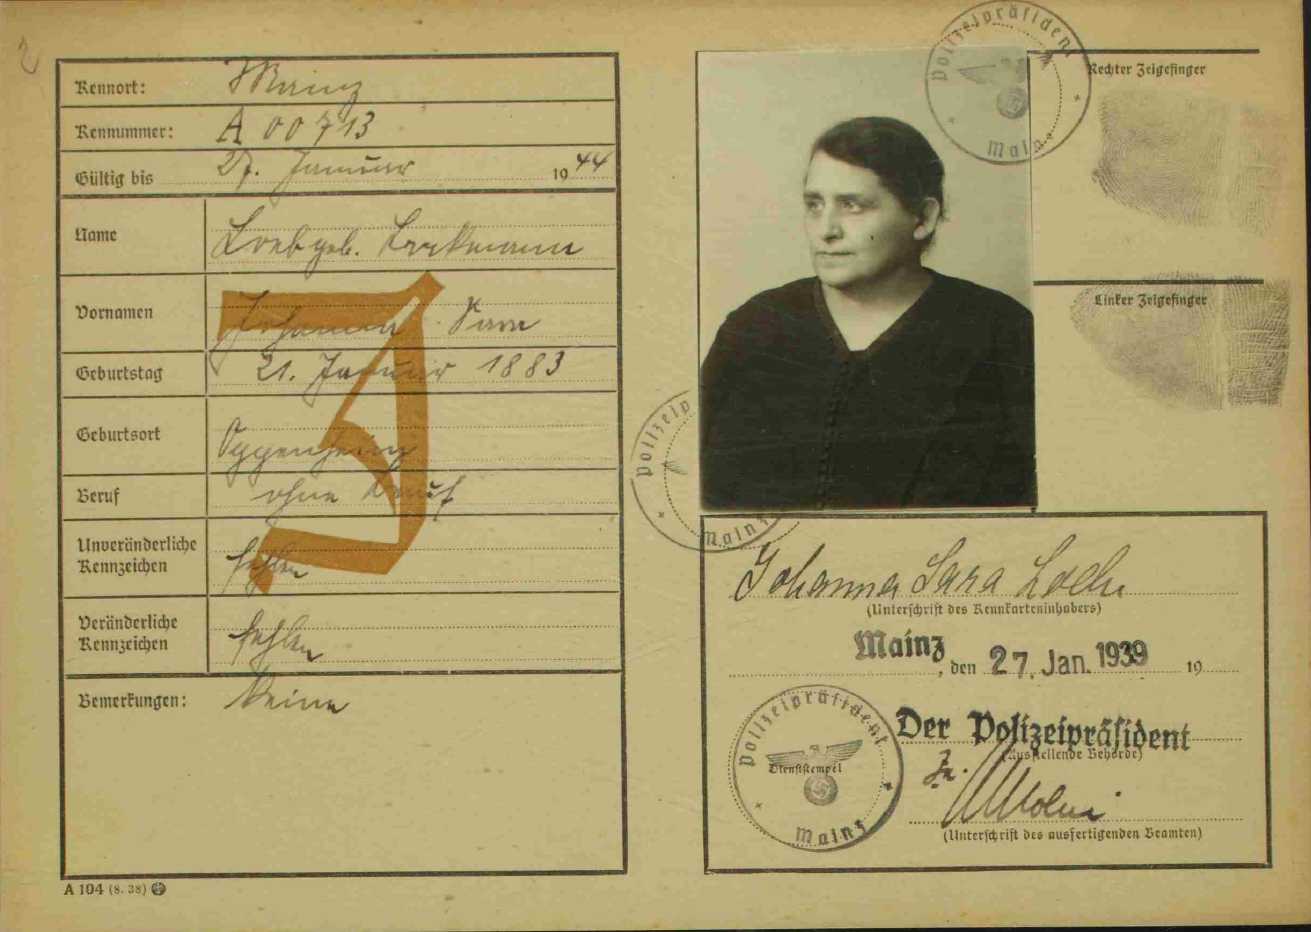 2
Kennort: Mainz
Kennummer: A 00713
Gültig bis 27. Januar 1944
Name Loeb geb.
Vornamen Johanna Sara
Geburtstag 21. Januar 1883
Geburtsort Oppenheim
Beruf ohne Beruf
Unveränderliche
Kennzeichen fehlen
Veränderliche
Kennzeichen fehlen
Bemerkungen: Keine
J
A 104 (8. 38)
Polizeipräsident
Mainz
Rechter Zeigefinger
Linker Zeigefinger
Polizeip
Mainz
Johanna Sara Loeb
(Unterschrift des Kennkarteninhabers)
Mainz, den 27. Jan. 1939 19
Der Polizeipräsident
(Ausstellende Behörde)
Polizeipräsident
Dienststempel
Mainz
(Unterschrift des ausfertigenden Beamten)